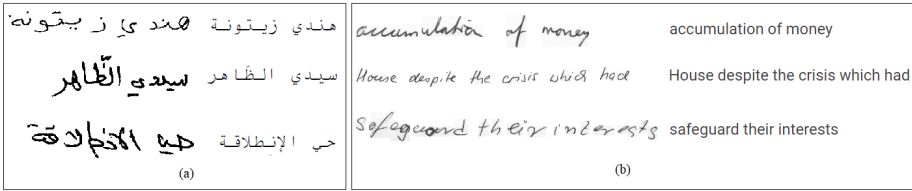 هندي زيتونة هندي زيتونة
سيدي الظَاهر سيدي الظَّاهر
حي الإنطلاقة حي الانطلاقة
(a)
accumulation of money accumulation of money
House despite the crisis which had House despite the crisis which had
safeguard their interests safeguard their interests
(b)